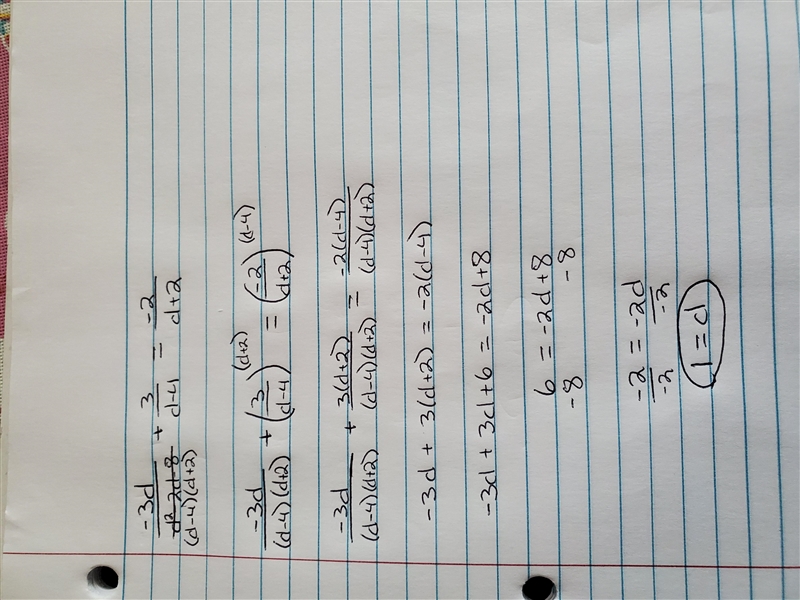 -3d/(d²-2d-8) + 3/(d-4) = -2/(d+2)
(d-4)(d+2)
-3d/((d-4)(d+2)) + (3/(d-4))(d+2) = (-2/(d+2))(d-4)
-3d/((d-4)(d+2)) + 3(d+2)/((d-4)(d+2)) = -2(d-4)/((d-4)(d+2))
-3d + 3(d+2) = -2(d-4)
-3d + 3d + 6 = -2d + 8
6 = -2d + 8
-8 -8
-2/-2 = -2d/-2
1 = d